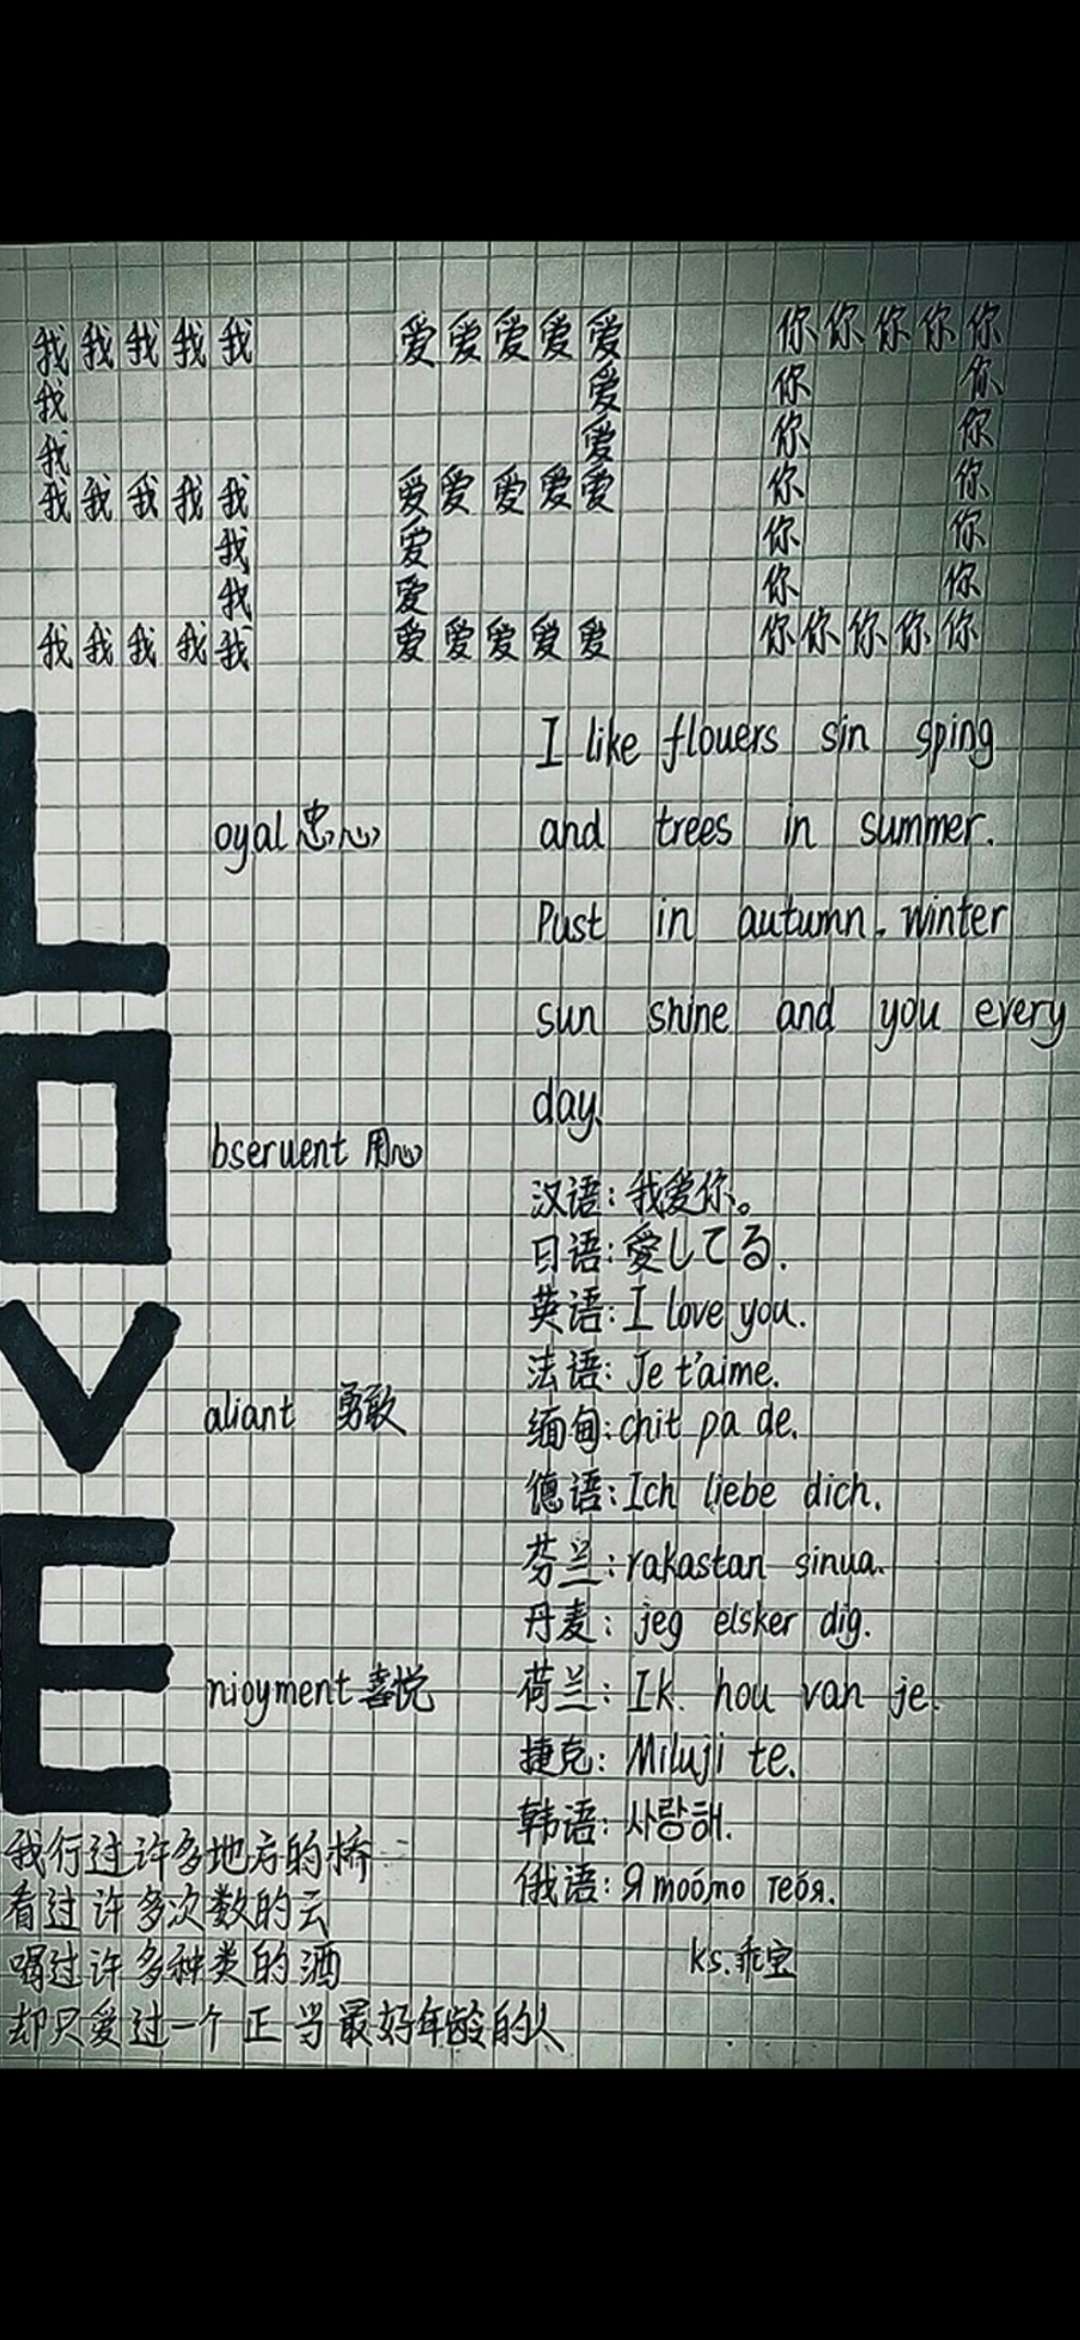 我我我我我 爱爱爱爱爱 你你你你你
我 爱 你 你
我 爱 你 你
我我我我我 爱爱爱爱爱 你 你
我 爱 你 你
我 爱 你 你
我我我我我 爱爱爱爱爱 你你你你你
L
oyal 忠心
O
bseruent 用心
V
aliant 勇敢
E
nioyment 喜悦
I like flouers sin sping
and trees in summer.
Pust in autumn. winter
sun shine and you every
day.
汉语: 我爱你。
日语: 愛してる.
英语: I love you.
法语: Je t'aime.
缅甸: chit pa de.
德语: Ich liebe dich.
芬兰: rakastan sinua.
丹麦: jeg elsker dig.
荷兰: Ik. hou van je.
捷克: Miluji te.
韩语: 사랑해.
俄语: Я тобто тебя.
ks.乖宝
我行过许多地方的桥
看过许多次数的云
喝过许多种类的酒
却只爱过一个正当最好年龄的人